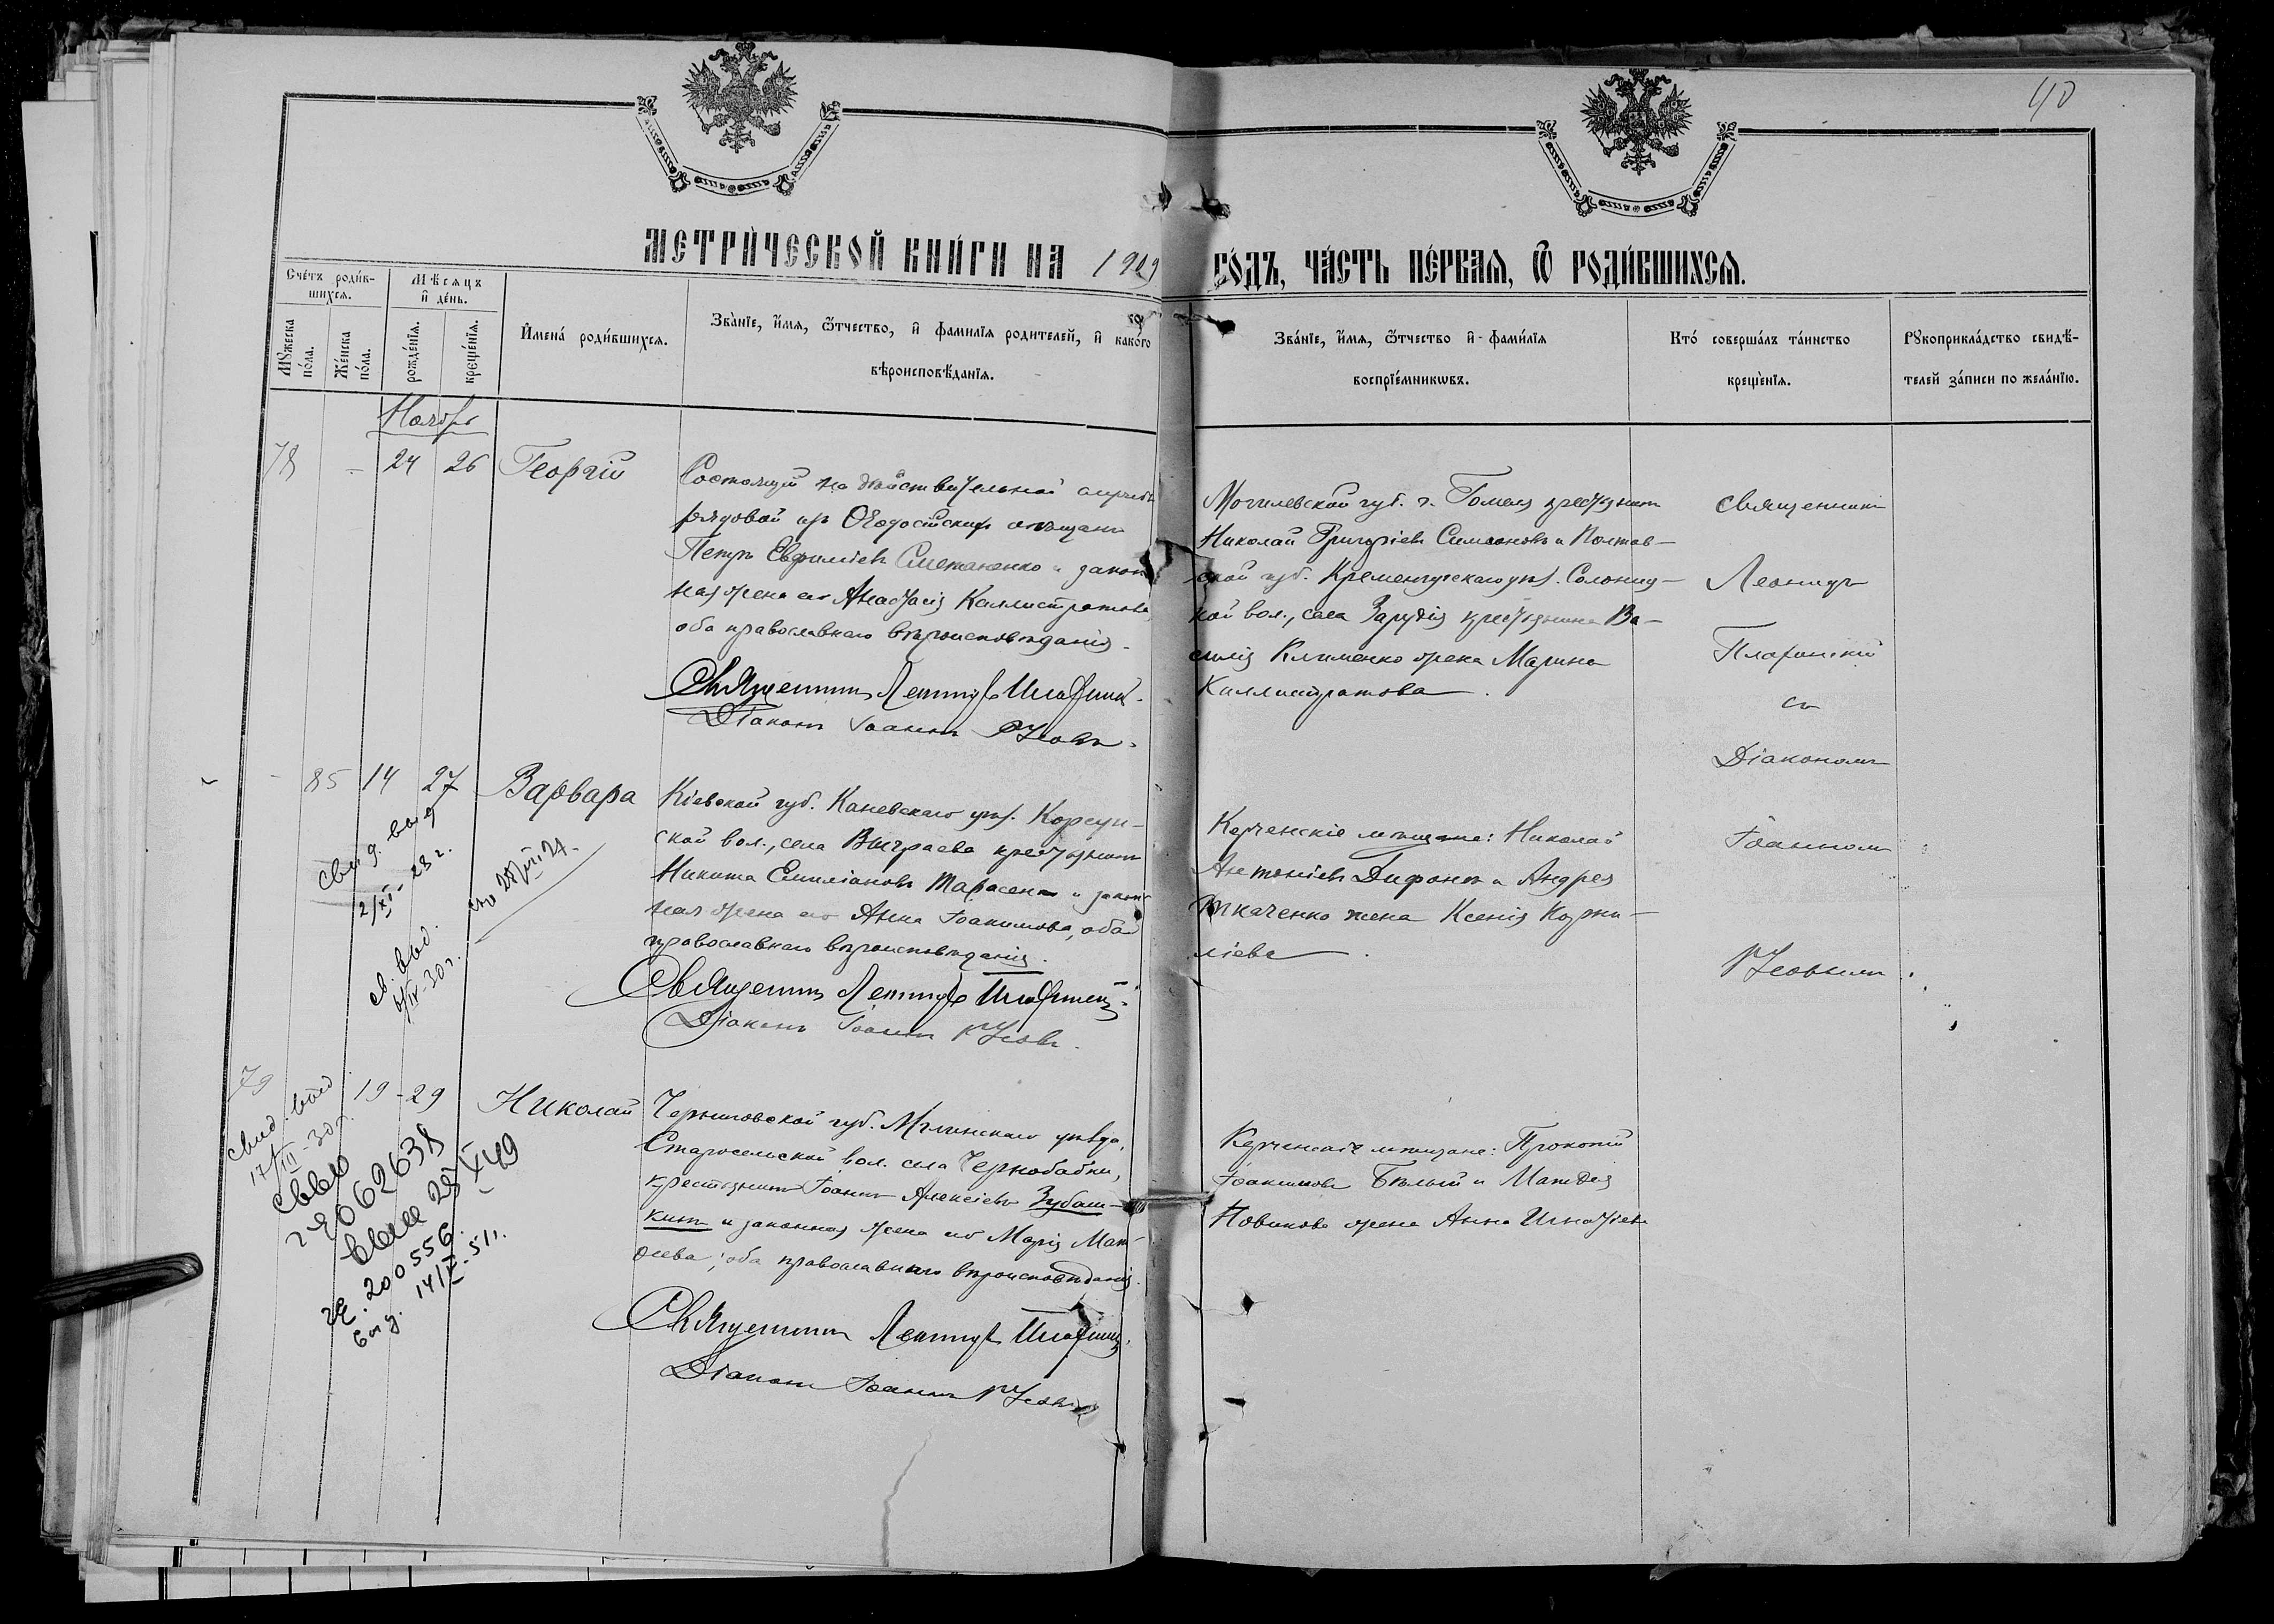 40
МЕТРИ́ЧЕСКОЙ КНИ́ГИ НА 1909 ГО́ДЪ, ЧА́СТЬ ПЕ́РВАЯ, Ѿ РОДИ́ВШИХСЯ.
Сче́тъ роди́в-
шихся.
Мѣсяцъ
и де́нь.
Мꙋжеска
по́ла.
Же́нска
по́ла.
рожде́нїя.
креще́нїя.
Имена́ роди́вшихся.
Зва́нїе, и́мя, ѻ҆́тчество, и фами́лїя родителей, и како́го
вѣроисповѣ́данїя.
Зва́нїе, и́мя, ѻ҆́тчество и фами́лїя
воспрїе́мникѡвъ.
Кто́ соверша́лъ та́инство
креще́нїя.
Рꙋкоприкла́дство свидѣ́-
телей за́писи по жела́нїю.
Ноябрь
78 - 24 26 Георгій
Состоящій на дѣйствительной службѣ
рядовой изъ Ѳеодосійскихъ мѣщанъ
Петръ Евфиміевъ Сметаненко и закон
ная жена его Анастасія Каллистратова
оба православнаго вѣроисповѣданія.
Священникъ Леонидъ
Діаконъ Іоаннъ Усовъ.
Могилевской губ. г. Гомеля крестьянинъ
Николай Григоріевъ Симоновъ и Полтав-
ской губ. Кременчугскаго уѣз. Солониц-
кой вол., села Зарудія крестьянина Ва-
силія Клименко жена Марина
Каллистратова.
Священникъ
Леонидъ
съ
Діакономъ
Іоанномъ
Усовымъ.
- 85 14 27 Варвара
Кіевской губ. Каневскаго уѣз. Корсун-
ской вол., села Выграева крестьянинъ
Никита Емиліановъ Тарасенко и закон
ная жена его Анна Іоакимова, оба
православнаго вѣроисповѣданія.
Священникъ Леонидъ
Діаконъ Іоаннъ Усовъ.
Керченскіе мѣщане: Николай
Антоніевъ Дифонъ и Андрея
Ткаченко жена Ксенія Корни-
ліева.
свид. выд
2/XI - 28 г.
св. выд.
6/IV - 30 г.
79 19 - 29 Николай
Черниговской губ. Мглинскаго уѣзда,
Старосельской вол. села Чернобабки,
крестьянинъ Іоаннъ Алексіевъ Зубаш-
кинъ и законная жена его Марія Мат-
ѳеева; оба православнаго вѣроисповѣданія.
Священникъ Леонидъ
Діаконъ Іоаннъ Усовъ
Керченскіе мѣщане: Прокопій
Іоакимовъ Бѣлый и Матѳея
Новикова жена Анна Игнатіева
свид. выд
17/III - 30 г.
062638
200556.
14/V - 51 г.